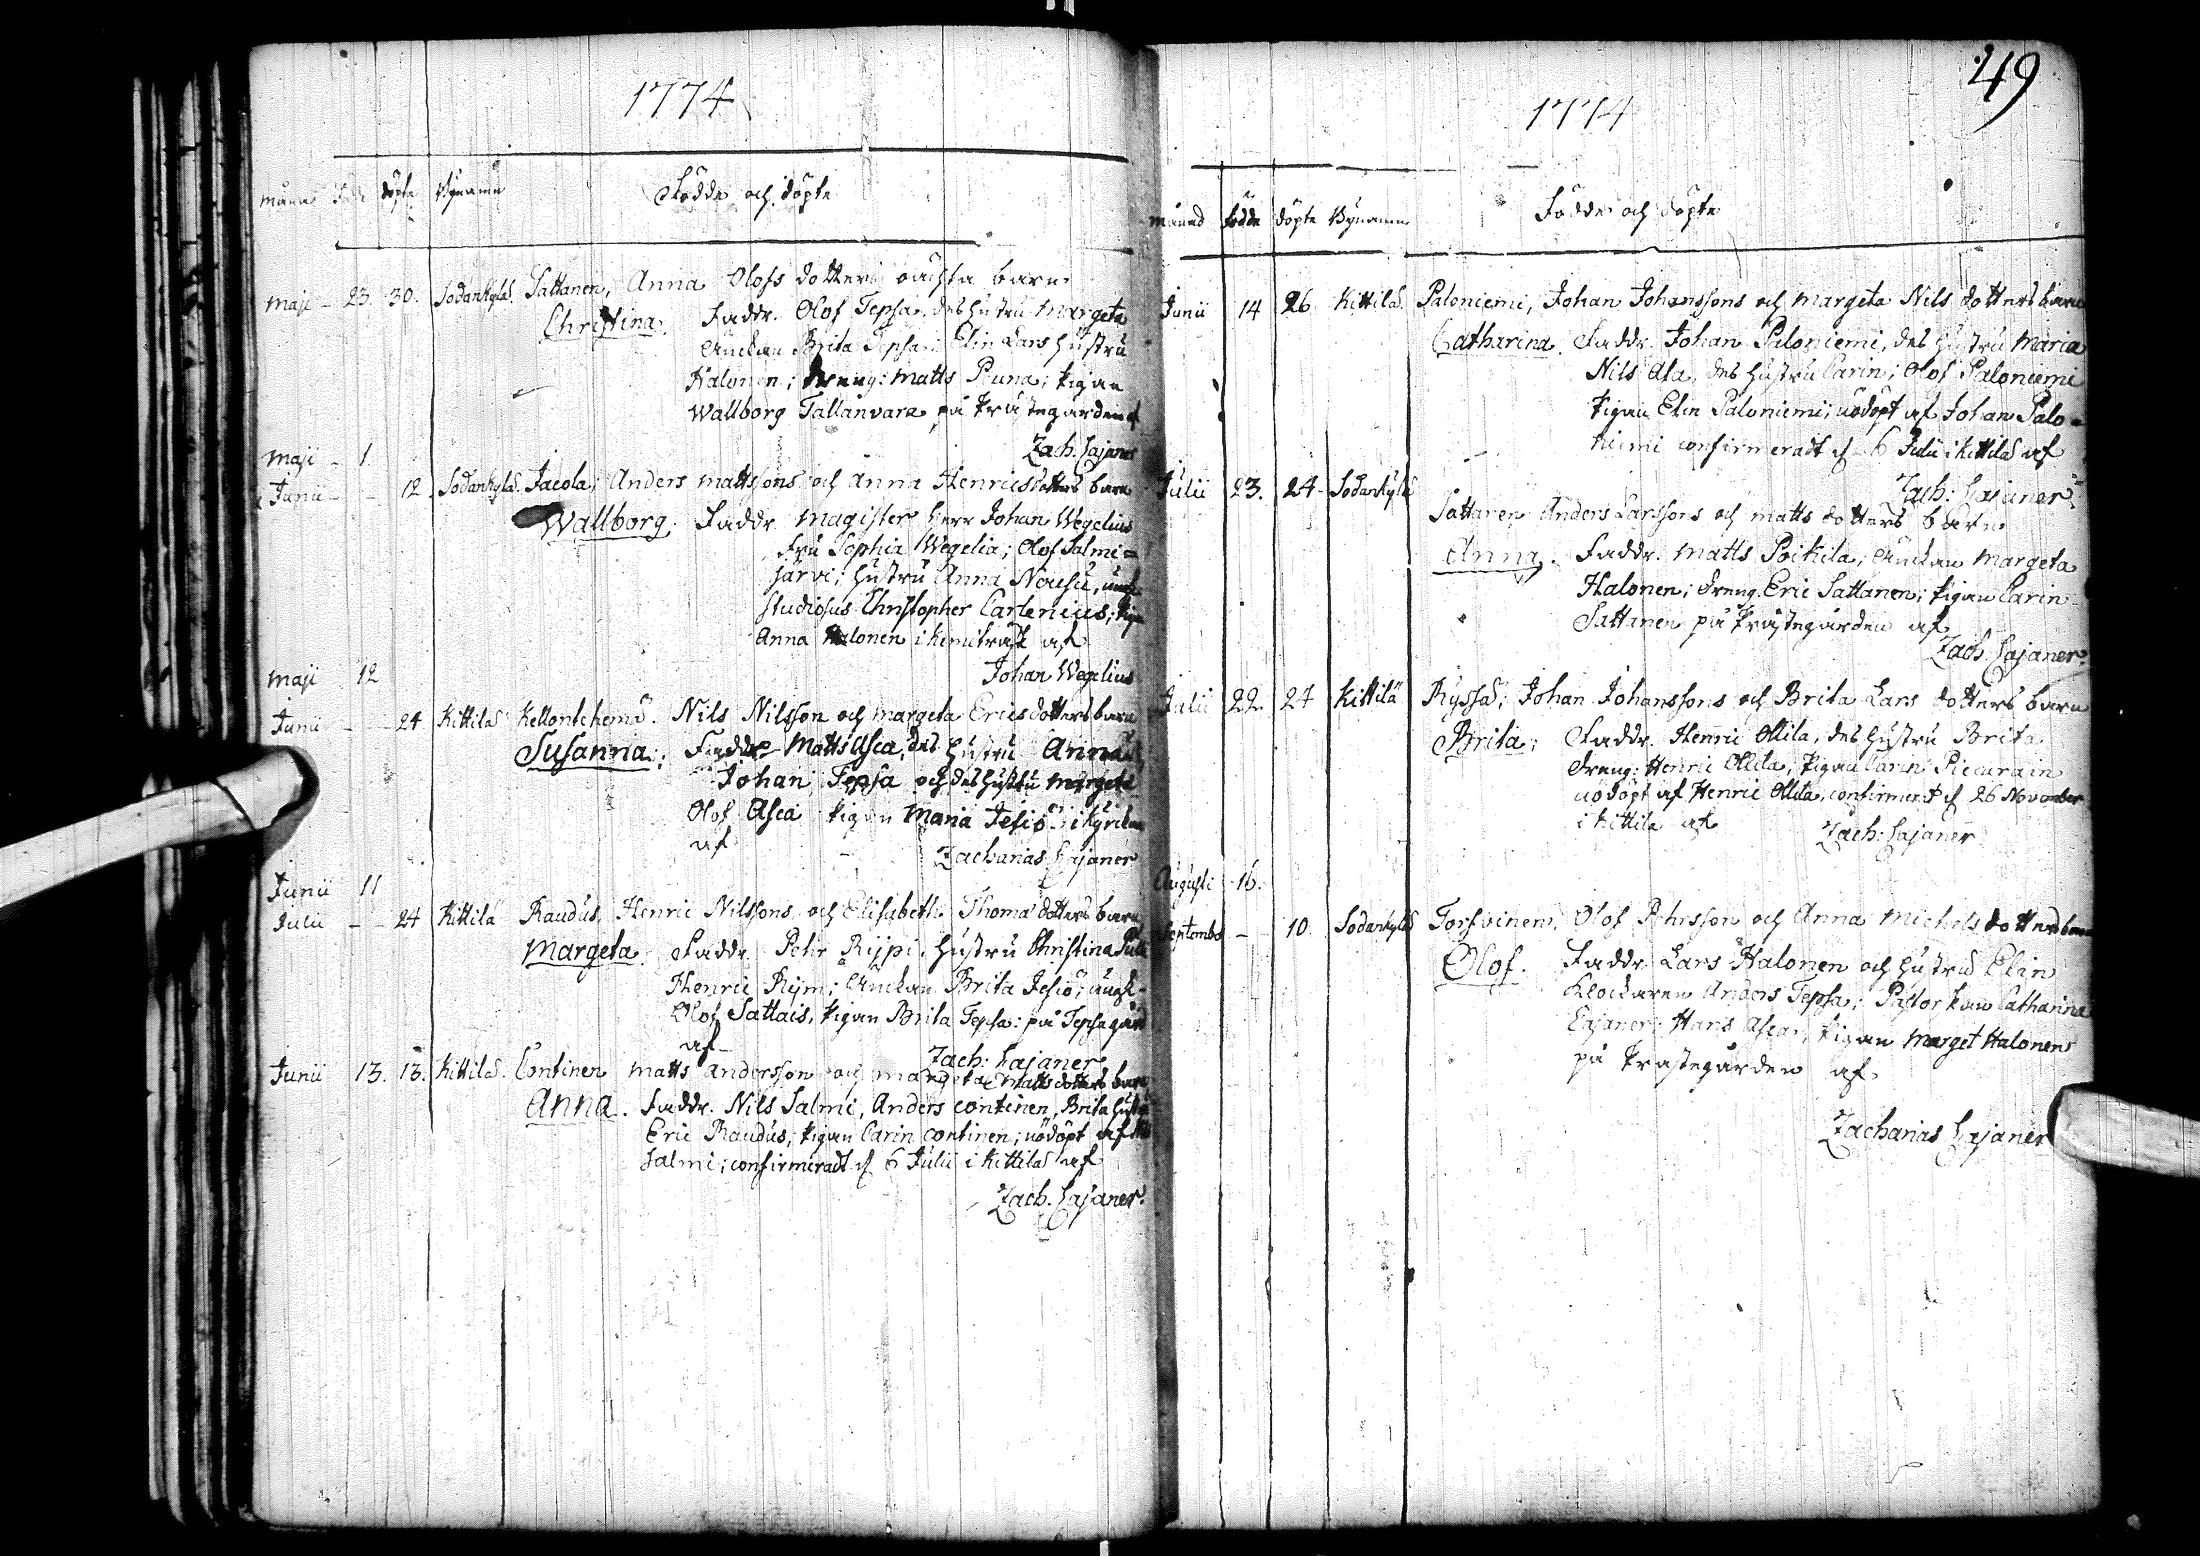 1774
månad Född döpte Bÿnamn Födde och döpte
Maji - 23. 30. Sodankylä. Sattanen, Anna Olofs dotters oächta barn
Christina. Faddr. Olof Tepsa, des hustru Margeta
Änckan Brita Tepsa; Elin Lars hustru
Halonen; Dreng: Matts Peuna; Pigan
Wallborg Tallanvara, på Prästegården af
Zach. Cajaner
Maji - 1
Junii - - 12 Sodankylä. Jacola; Anders Mattssons och Anna Henrics dotters barn
Wallborg. Faddr. Magister Herr Johan Wegelius
Fru Sophia Wegelia; Olof Salmi=
järvi; hustru Anna
Studiosus Christopher Carlenius; Pigan
Anna Halonen i Kemiträsk af
Johan Wegelius
Maji 12
Junii - - 24 Kittilä Kellontekemä. Nils Nilsson och Margeta Erics dotters barn
Susanna; Faddr Matts Asca, des hustru Anna
Johan Tepsa och des hustru Margeta
Olof Asca Pigan Maria Jesiö i Kyrckan
af Zacharias Cajaner
Junii 11
Julii - - 24 Kittilä Raudus, Henric Nilssons och Elisabeth Thomæ dotters barn
Margeta. Faddr. Pehr Rijpi, hustru Christina
Henric Rijm; Änckan Brita Jesiö;
Olof Sattais, Pigan Brita Tepsa: på Tepsa gård
af - Zach: Cajaner
Junii 13. 13. Kittilä. Continen Matts Andersson och Margeta Matts dotters barn
Anna. Faddr. Nils Salmi, Anders Continen, Brita hustru
Eric Raudus; Pigan Carin Continen; nödöpt af Nils
Salmi; confirmeradt d 6 Julii i Kittilä af
Zach. Cajaner.
49
1774
månad födde döpte Bÿnamn Födde och döpte
Junii 14 26. Kittilä. Paloniemi, Johan Johanssons och Margeta Nils dotters barn
Catharina. Faddr. Johan Paloniemi, des hustru Maria
Nils Ala, des hustru Carin; Olof Paloniemi
Pigan Elin Paloniemi; nödöpt af Johan Palo-
niemi confirmeradt d 6 Julii i Kittilä af
Zach: Cajaner
Julii 23. 24 - Sodankylä
Sattanen Anders Larssons och Matts dotters barn
Anna. Faddr. Matts Poikila; Änckan Margeta
Halonen; Dreng. Eric Sattanen; Pigan Carin
Sattanen på Prästegården af
Zach Cajaner.
Julii 22. 24 Kittilä Ryssä; Johan Johanssons och Brita Lars dotters barn
Brita; Faddr. Henric Ollila, des hustru Brita
Dreng: Henric Ollila, Pigan Carin
nödöpt af Henric Ollila, confirmerat d 26 November
i Kittilä af Zach: Cajaner
Augusti 16.
Septembr - 10. Sodankylä Torsvinen. Olof Pehrsson och Anna Michels dotters barn
Olof. Faddr. Lars Halonen och hustru Elin
Klockaren Anders Tepsa; Pastorskan Catharina
Cajaner: Hans Asca, Pigan Marget Halonen
på Prästegården af.
Zacharias Cajaner